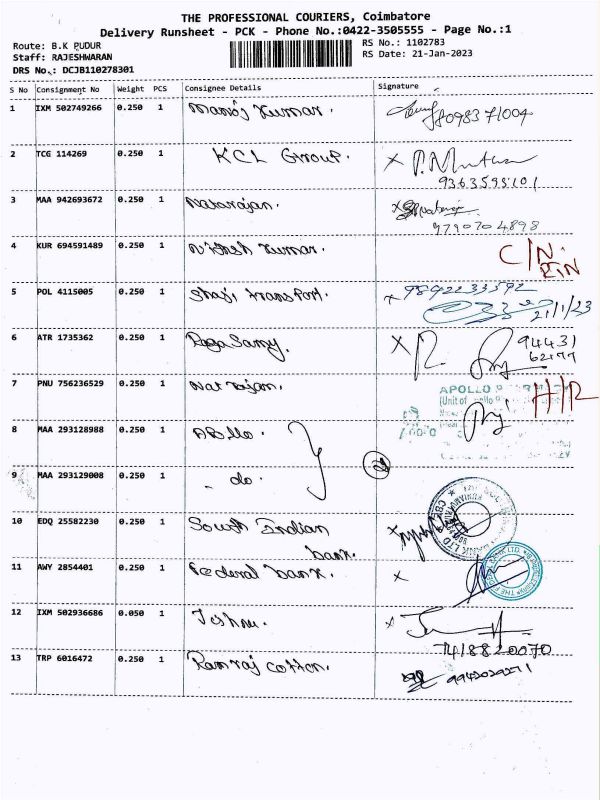 THE PROFESSIONAL COURIERS, Coimbatore
Delivery Runsheet - PCK - Phone No.:0422-3505555 - Page No.:1
Route: B.K PUDUR
RS No.: 1102783
Staff: RAJESHWARAN
RS Date: 21-Jan-2023
DRS No.: DCJB110278301
S No Consignment No Weight PCS Consignee Details Signature
1 IXM 502749266 0.250 1 Manoj Kumar. 8098371004
2 TCG 114269 0.250 1 KCL Group. X P. 9363598101
3 MAA 942693672 0.250 1 Natarajan. X 9790704898
4 KUR 694591489 0.250 1 Kumar. C/N.
5 POL 4115005 0.250 1 Shaji transport. X 9892233592
21/1/23
6 ATR 1735362 0.250 1 X R. 94431
62177
7 PNU 756236529 0.250 1 Natrajan. H/R
APOLLO
(Unit of
8 MAA 293128988 0.250 1
9 MAA 293129008 0.250 1 - do. 2
10 EDQ 25582230 0.250 1 South Indian
bank. X
BANK LTD
11 AWY 2854401 0.250 1 Federal bank. X
12 IXM 502936686 0.050 1 X
7418820070
13 TRP 6016472 0.250 1 Ramraj cotton. 9942029271